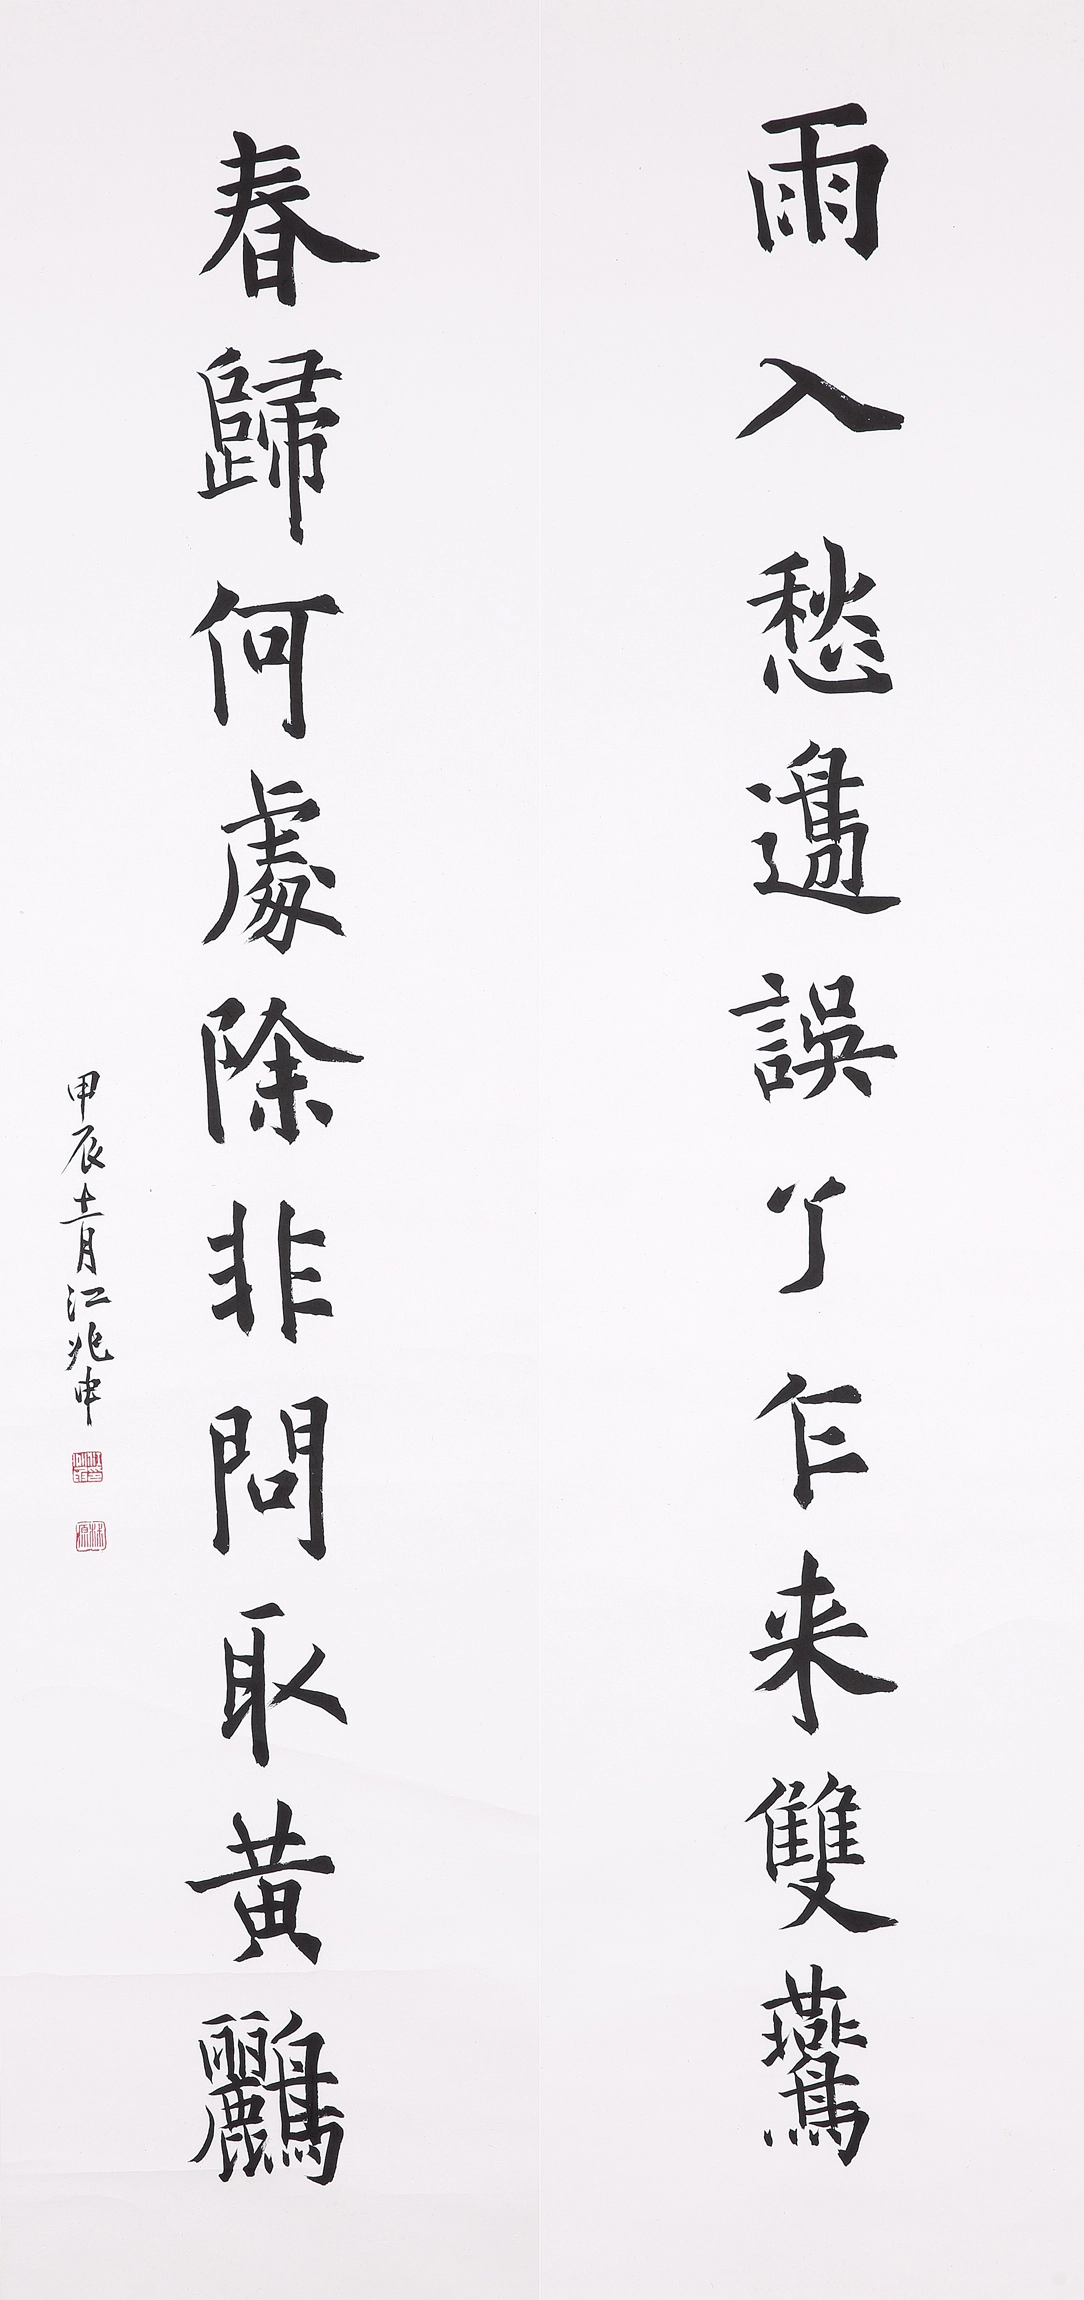 雨入愁邊誤了乍来雙鷰
春歸何處除非問取黃鸝
甲辰十二月江兆申